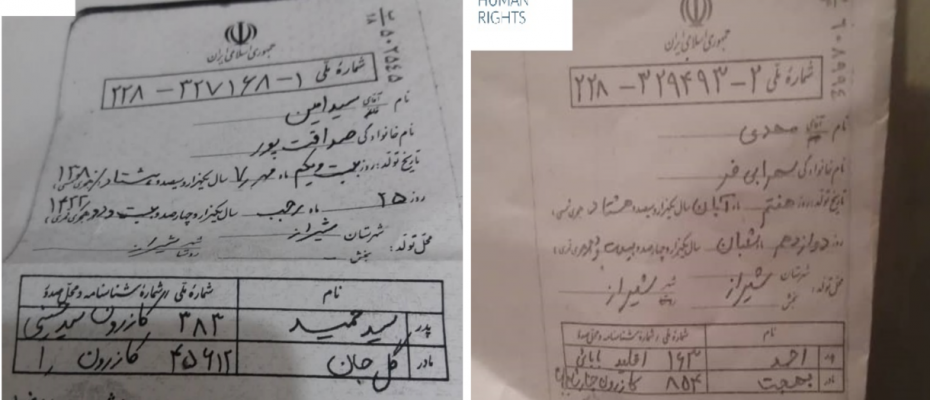 جمهوری اسلامی ایران
شمارهٔ ملی ۱-۳۲۷۱۶۸-۲۲۸
نام آقای سید امین
نام خانوادگی صداقت پور
تاریخ تولد: روز بیست و یکم ماه مهر ۷ سال یکهزار و سیصد و هشتاد ۱۳۸۰ هجری شمسی
روز ۲۵ ماه رجب سال یکهزار و چهارصد و بیست و دو ۱۴۲۲ هجری قمری
محل تولد: شهرستان شیراز بخش
شهر روستا شیراز
نام شمارهٔ ملی / شمارهٔ شناسنامه و محل صدور
پدر سید حمید ۳۸۳ کازرون
مادر گل جان ۴۵۶۱۲ کازرون را
HUMAN
RIGHTS
جمهوری اسلامی ایران
شمارهٔ ملی ۲-۳۲۹۴۹۳-۲۲۸
نام آقای محدی
نام خانوادگی سهرابی فر
تاریخ تولد: روز هفتم ماه آبان سال یکهزار و سیصد و هشتاد هجری شمسی
روز دوازدهم ماه شعبان سال یکهزار و چهارصد و بیست و دو هجری قمری
محل تولد: شهرستان شیراز بخش
شهر شیراز
نام شمارهٔ ملی / شمارهٔ شناسنامه و محل صدور
پدر احمد ۱۶۳ اقلید بابائی
مادر بهجت ۸۵۴ کازرون